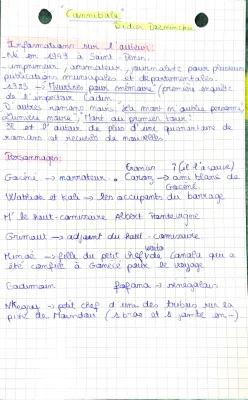 "Cannibale"
Didier Daeninckx
Informations sur l'auteur:
Né en 1949 à Saint Denis.
imprimeur, animateur, journaliste pour plusieurs
publications municipales et départementales.
1983 → Meurtres pour mémoire (première enquête
de l'inspecteur Cadin.
D'autres romans noirs "La mort n'oublie personne,
Lumière noire", "Mort au premier tour"
Il est l'auteur de plus d'une quarantaine de
romans et recueils de nouvelles.
Personnages:
Gocéné → narrateur. Caroz → ami blanc de
Gocéné
Wathiock et Kali → les occupants du barrage
M' le haut-comissaire Albert Pontevigne
Grimaut → adjoint du haut-comissaire
Minoé → fille du petit chef de Canala qui a
été confié à Gocéné pour le voyage
Badimoin fofana → sénégalais
petit chef d'une des tribus sur la